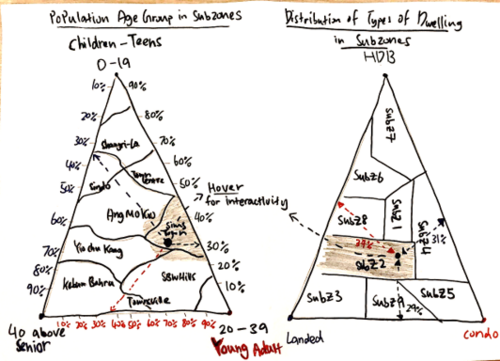 Population Age Group in Subzones
Children-Teens
0-19
10%
20%
30%
40%
50%
60%
70%
80%
90%
90%
80%
70%
60%
50%
40%
30%
20%
10%
Shangri-La
Town
Centre
Sindo
Ang Mo Kio
Yio chu Kang
Kebun Bahru
Townsville
40 above
Senior
10% 20% 30% 40% 50% 60% 70% 80% 90%
20-39
Young Adult
Hover
for interactivity
Distribution of Types of Dwelling
in Subzones
HDB
SubZ7
SubZ6
SubZ8
SubZ1
SubZ4
31%
39%
SubZ2
SubZ3
SubZ9
29%
SubZ5
Landed
condo